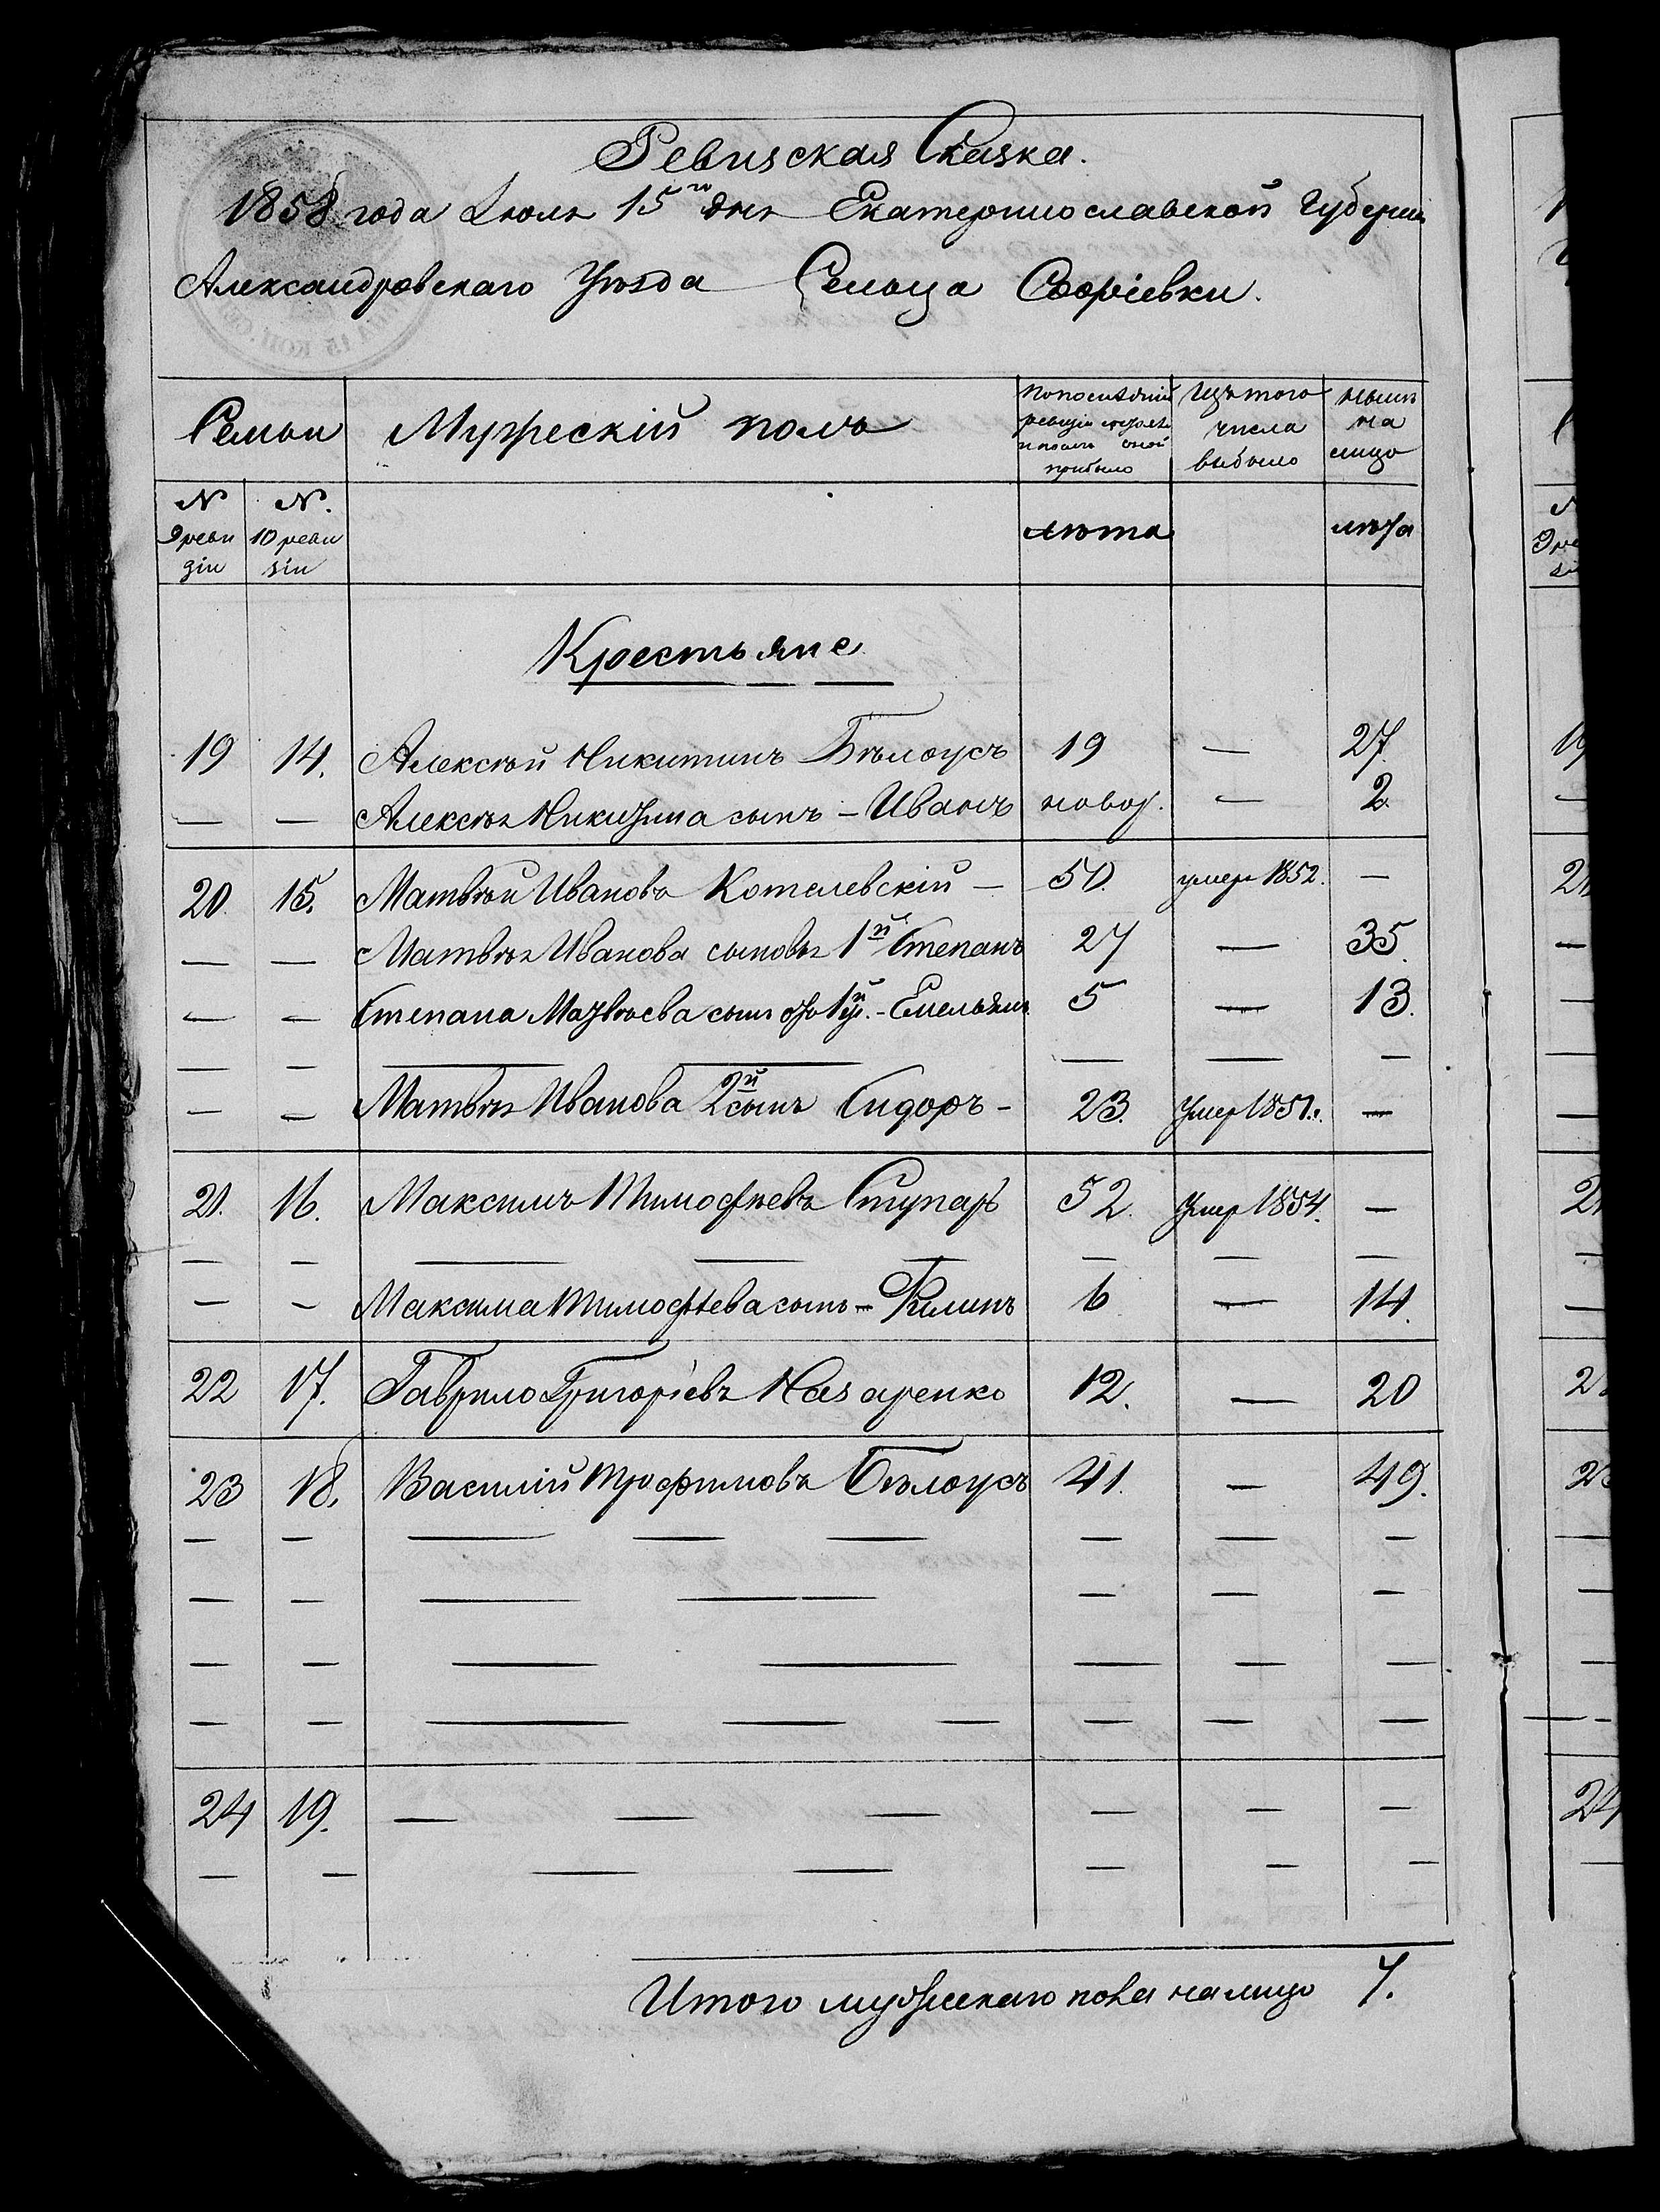 Ревизская Сказка.
1858 года Іюля 15го дня Екатеринославской Губерніи
Александровскаго Уѣзда Сельца Софіевки.
Семьи Мужескій полъ По последній Изъ того нынѣ
ревизіи состояло числа на
и послѣ оной выбыло лицо
прибыло
N N.
9 реви 10 реви лѣта лѣта
зіи зіи
Крестьяне
19 14. Алексѣй Никитинъ Бѣлоусъ 19 — 27.
— — Алексѣя Никитина сынъ – Иванъ новор. — 2
20. 15. Матвѣй Ивановъ Котелевскій – 50. умеръ 1852. —
— — Матвѣя Иванова сыновья 1й Степанъ 27 — 35.
— — Степана Матвѣева сынъ отъ 1й – Емельянъ 5 — 13.
— — — — — — —
— — Матвѣя Иванова 2й сынъ Сидоръ – 23. Умер 1851. —
21. 16. Максимъ Тимофѣевъ Ступарь 52. Умер 1854. —
— — — — — — — —
— — Максима Тимофѣева сынъ – Филипъ 6 — 14.
22 17. Гаврило Григорьевъ Назаренко 12. — 20
23 18. Василій Трофимовъ Бѣлоусъ 41. — 49.
— — — — — — — —
— — — — — — —
— — — — — — —
— — — — — — — —
24 19. — — — — — —
— — — — — — —
Итого мужескаго пола на лицо 7.
15 КОП.
19
—
20
—
—
—
—
2
—
—
2
23
—
—
—
—
24
—